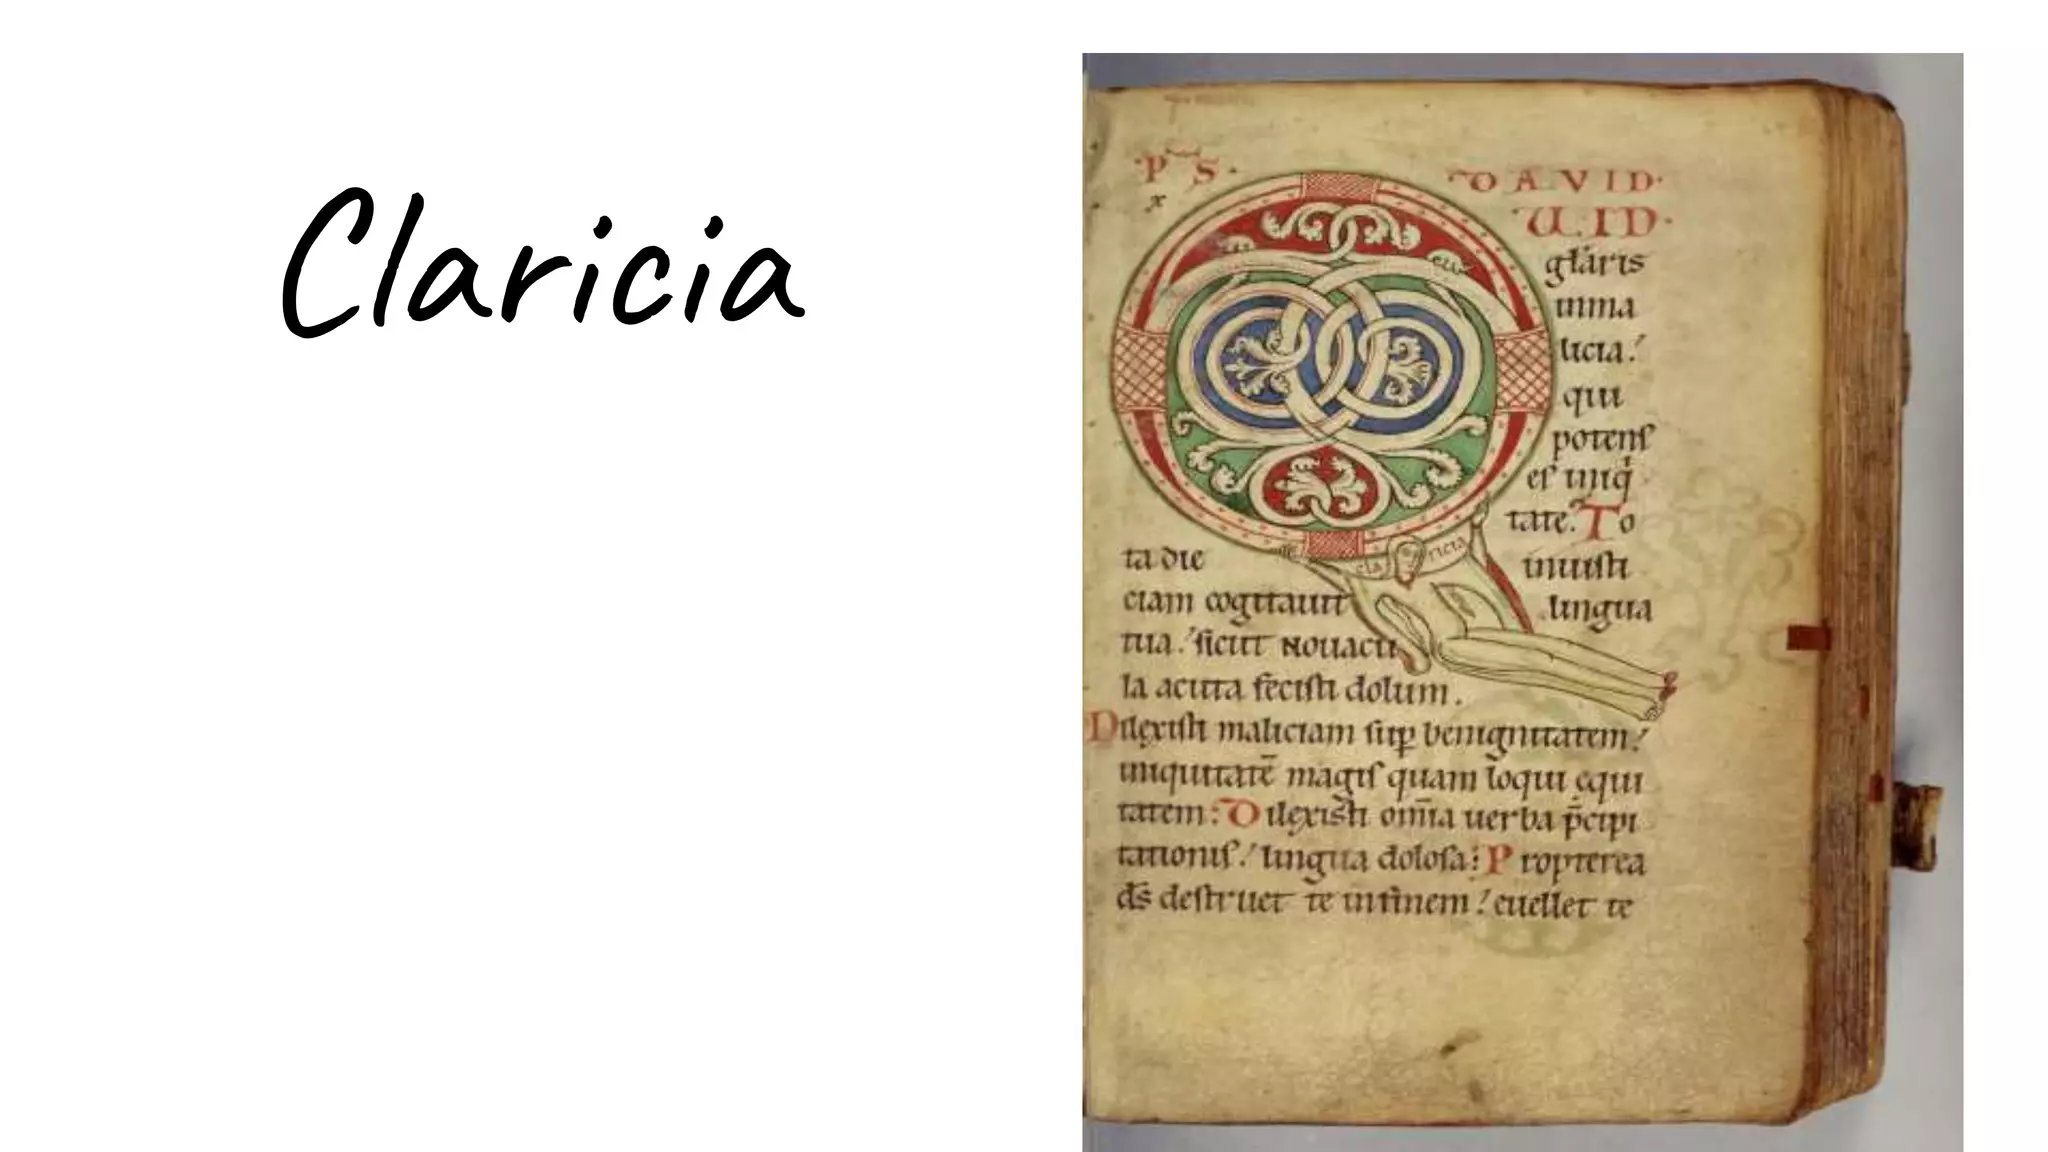 Claricia
·P S·
x
DAVID·
UID·
glaris
inma
licia.
qui
potenſ
eſ iniq̇
tate. To
cla ricia
ta die
iniuſti
ciam cogitauit
lingua
tua. ſicut nouacu
la acuta feciſti dolum.
Dilexiſti maliciam sup benignitatem.
iniquitatē magiſ quam loqui ęqui
tatem: Dilexiſti om̄ia uerba p̄cipi
tationiſ. lingua doloſa: Propterea
dſ deſtruet te infinem. euellet te